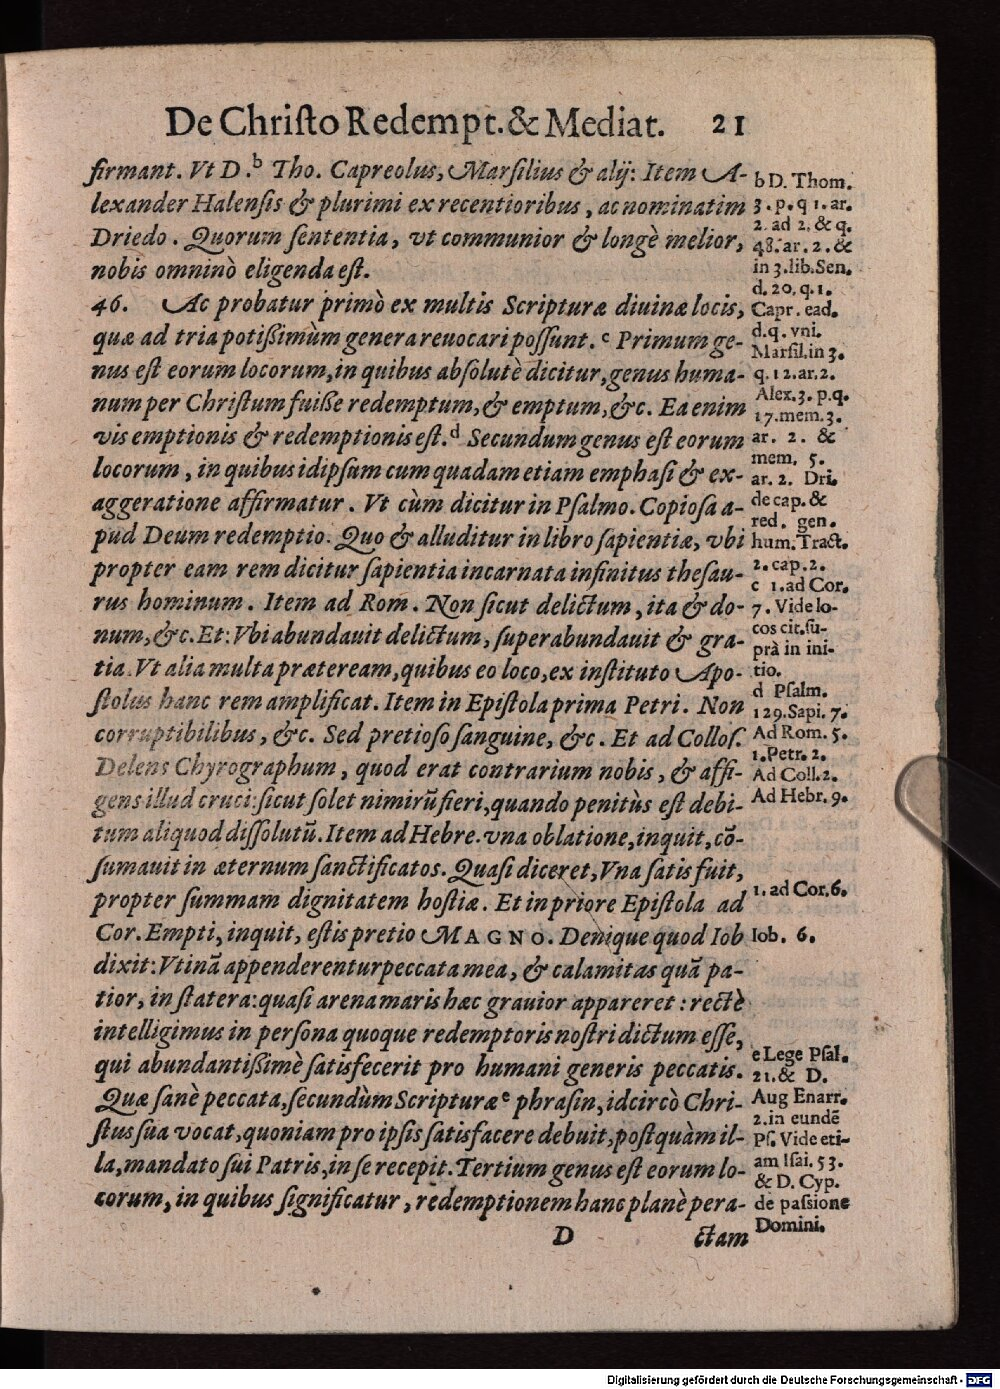 De Chriſto Redempt. & Mediat. 21
firmant. Vt D.ᵇ Tho. Capreolus, Marſilius & alij: Item A-
lexander Halenſis & plurimi ex recentioribus, ac nominatim
Driedo. Quorum ſententia, vt communior & longè melior,
nobis omninò eligenda eſt.
46. Ac probatur primò ex multis Scripturæ diuinæ locis,
quæ ad tria potißimùm genera reuocari poſſunt. ᶜ Primum ge-
nus eſt eorum locorum, in quibus abſolutè dicitur, genus huma-
num per Chriſtum fuiße redemptum, & emptum, &c. Ea enim
vis emptionis & redemptionis eſt. ᵈ Secundum genus eſt eorum
locorum, in quibus idipſum cum quadam etiam emphaſi & ex-
aggeratione affirmatur. Vt cùm dicitur in Pſalmo. Copioſa a-
pud Deum redemptio. Quo & alluditur in libro ſapientiæ, vbi
propter eam rem dicitur ſapientia incarnata infinitus theſau-
rus hominum. Item ad Rom. Non ſicut delictum, ita & do-
num, &c. Et: Vbi abundauit delictum, ſuperabundauit & gra-
tia. Vt alia multa præteream, quibus eo loco, ex inſtituto Apo-
ſtolus hanc rem amplificat. Item in Epiſtola prima Petri. Non
corruptibilibus, &c. Sed pretioſo ſanguine, &c. Et ad Colloſ.
Delens Chyrographum, quod erat contrarium nobis, & affi-
gens illud cruci: ſicut ſolet nimirũ fieri, quando penitùs eſt debi-
tum aliquod diſſolutũ. Item ad Hebre. vna oblatione, inquit, cõ-
ſumauit in æternum ſanctificatos. Quaſi diceret, Vna ſatis fuit,
propter ſummam dignitatem hoſtiæ. Et in priore Epiſtola ad
Cor. Empti, inquit, eſtis pretio MAGNO. Denique quod Iob
dixit: Vtinã appenderentur peccata mea, & calamitas quã pa-
tior, in ſtatera: quaſi arena maris hæc grauior appareret: rectè
intelligimus in perſona quoque redemptoris noſtri dictum eſſe,
qui abundantißimè ſatisfecerit pro humani generis peccatis.
Quæ ſanè peccata, ſecundùm Scripturæᵉ phraſin, idcircò Chri-
ſtus ſua vocat, quoniam pro ipſis ſatisfacere debuit, poſtquàm il-
la, mandato ſui Patris, in ſe recepit. Tertium genus eſt eorum lo-
corum, in quibus ſignificatur, redemptionem hanc planè pera-
D ctam
b D. Thom.
3. p. q 1. ar.
2. ad 2. & q.
48. ar. 2. &
in 3. lib. Sen.
d. 20. q. 1.
Capr. ead.
d. q. vni.
Marſil. in 3.
q. 12. ar. 2.
Alex. 3. p. q.
17. mem. 3.
ar. 2. &
mem. 5.
ar. 2. Dri.
de cap. &
red. gen.
hum. Tract.
2. cap. 2.
c 1. ad Cor.
7. Vide lo-
cos cit. ſu-
prà in ini-
tio.
d Pſalm.
129. Sapi. 7.
Ad Rom. 5.
1. Petr. 2.
Ad Coll. 2.
Ad Hebr. 9.
1. ad Cor. 6.
Iob. 6.
e Lege Pſal.
21. & D.
Aug Enarr.
2. in eundẽ
Pſ. Vide eti-
am Iſai. 53.
& D. Cyp.
de paſsione
Domini.
Digitalisierung gefördert durch die Deutsche Forschungsgemeinschaft - DFG